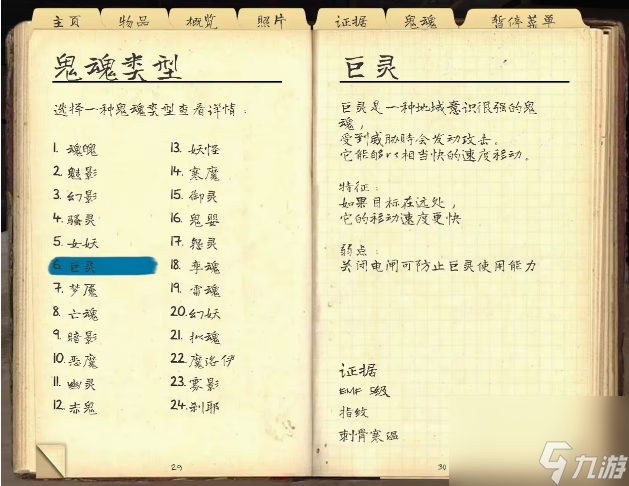 主页
物品
概览
照片
证据
鬼魂
暂停菜单
鬼魂类型
选择一种鬼魂类型查看详情：
1. 魂魄
2. 魅影
3. 幻影
4. 骚灵
5. 女妖
6. 巨灵
7. 梦魇
8. 亡魂
9. 暗影
10. 恶魔
11. 幽灵
12. 赤鬼
13. 妖怪
14. 寒魔
15. 御灵
16. 鬼婴
17. 怨灵
18. 孪魂
19. 雷魂
20. 幻妖
21. 拟魂
22. 魔洛伊
23. 雾影
24. 刹耶
29
巨灵
巨灵是一种地域意识很强的鬼
魂，
受到威胁时会发动攻击。
它能够以相当快的速度移动。
特征：
如果目标在远处，
它的移动速度更快
弱点：
关闭电闸可防止巨灵使用能力
证据
EMF 5级
指纹
刺骨寒温
30
九游